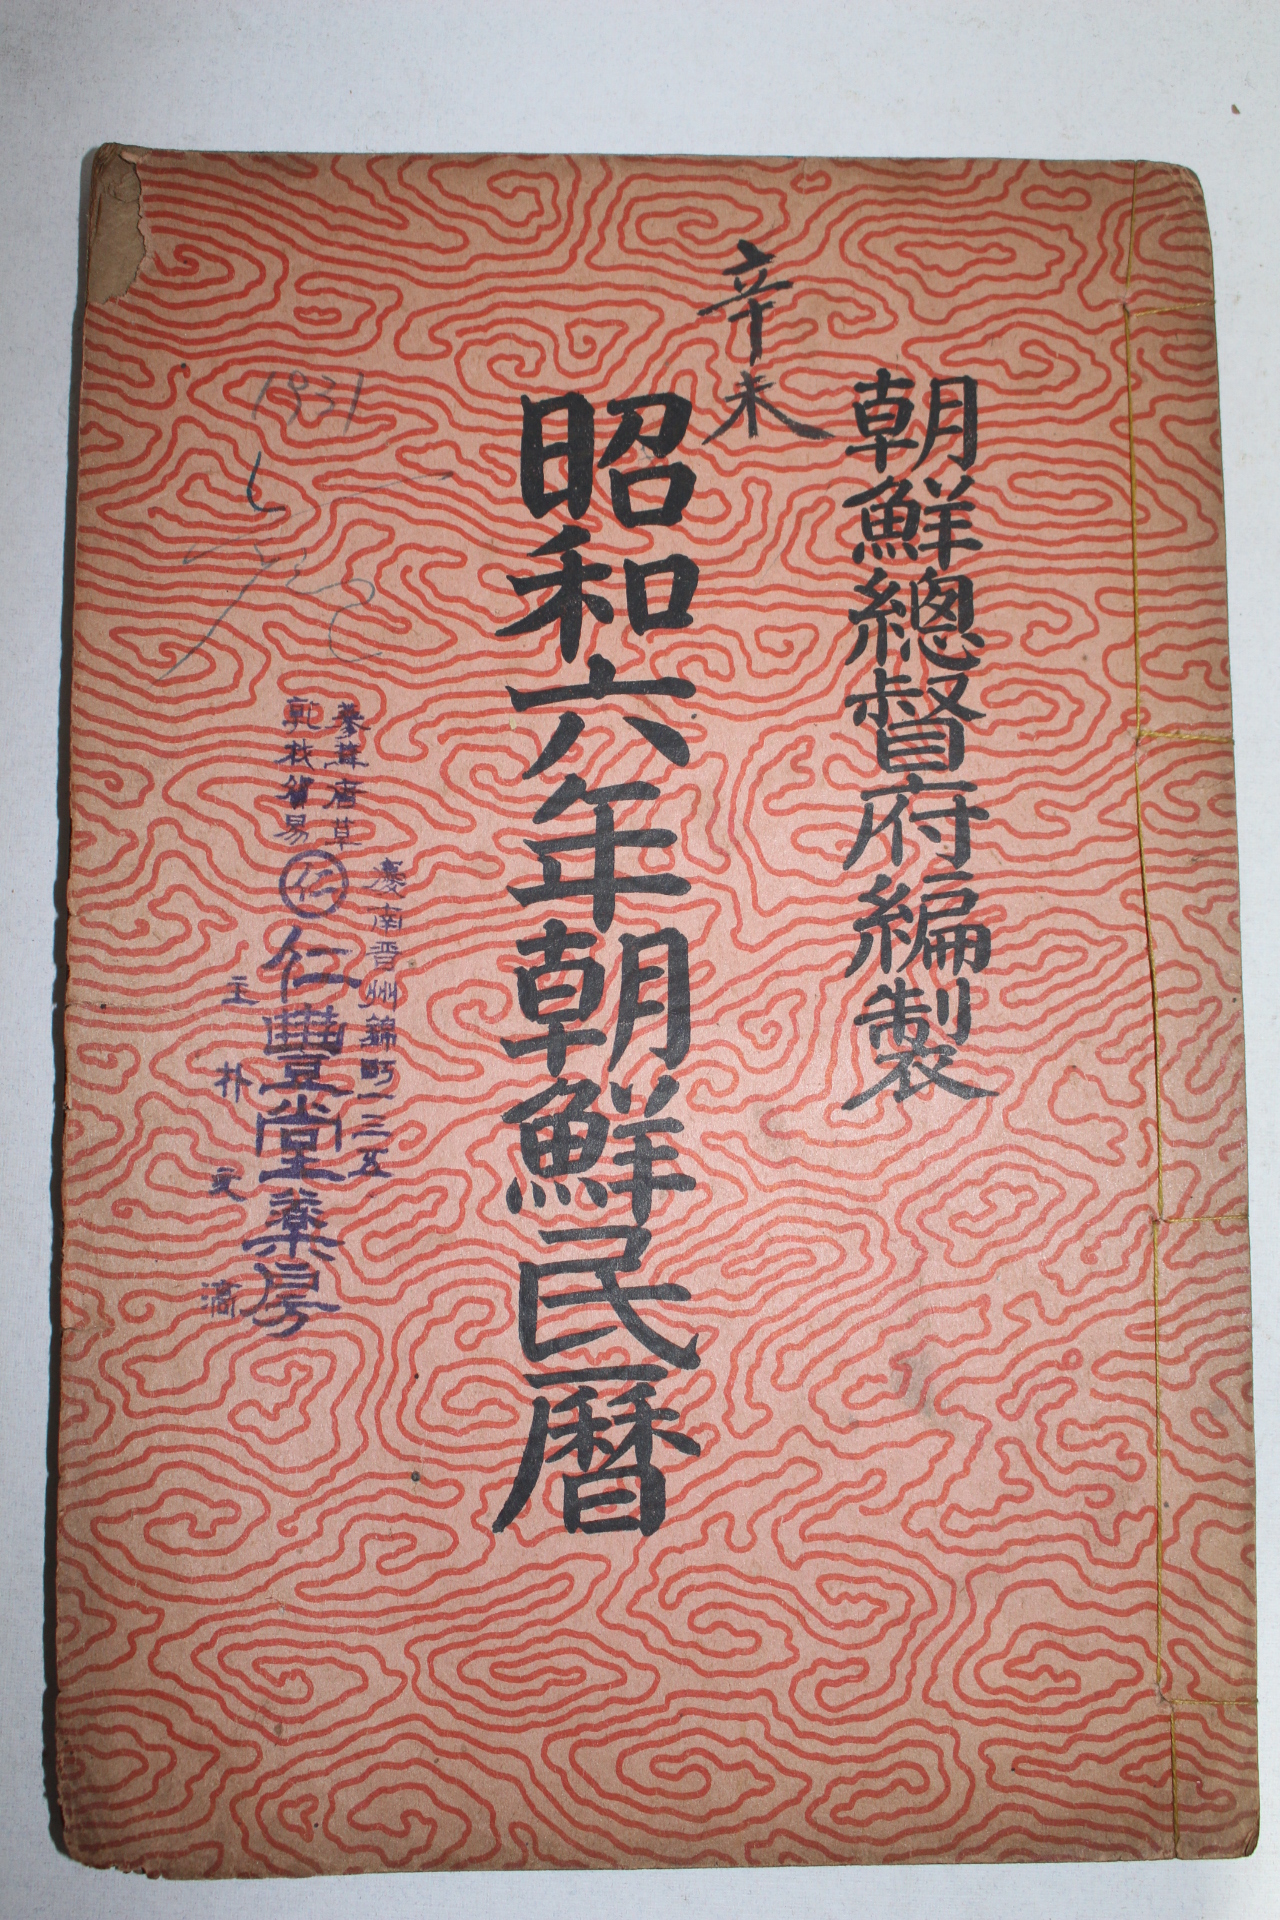 朝鮮總督府編製
辛未
昭和六年朝鮮民暦
1931
慶南晋州錦町一三五
蔘茸唐草
乾材貿易
仁
仁豊堂薬房
主 朴 文